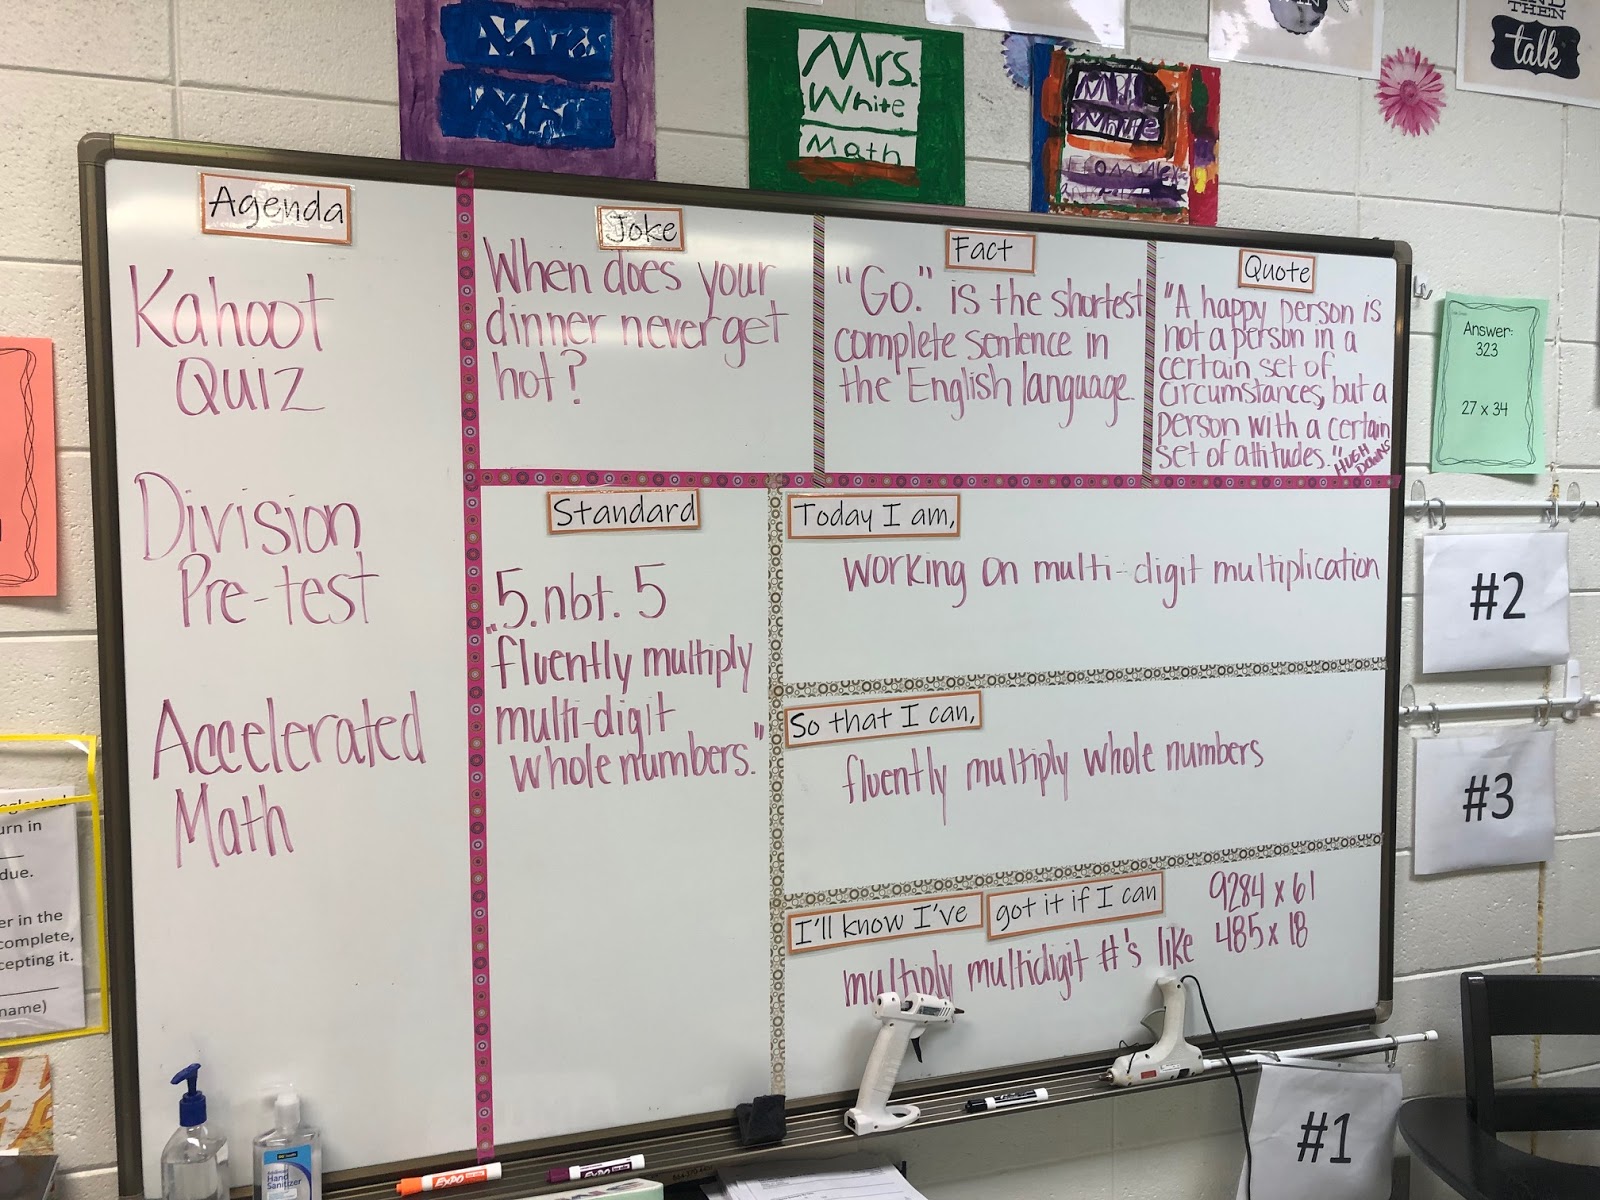 Mrs.
White
Mrs.
White
Math
Mrs.
White
THEN
talk
Agenda
Kahoot
Quiz
Division
Pre-test
Accelerated
Math
Joke
When does your
dinner never get
hot?
Fact
"Go." is the shortest
complete sentence in
the English language.
Quote
"A happy person is
not a person in a
certain set of
circumstances, but a
person with a certain
set of attitudes."
HUGH
DOWNS
Standard
5.nbt.5
"fluently multiply
multi-digit
whole numbers."
Today I am,
working on multi-digit multiplication
So that I can,
fluently multiply whole numbers
I'll know I've got it if I can
multiply multidigit #'s like
9284 x 61
485 x 18
Answer:
323
27 x 34
#2
#3
#1
urn in
due.
er in the
complete,
cepting it.
name)
Hand
Sanitizer
EXPO
EXPO